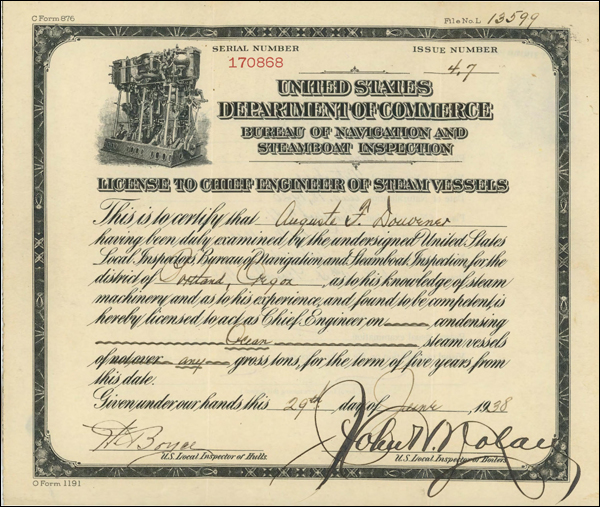 C Form 876
File No. L 13599
SERIAL NUMBER
170868
ISSUE NUMBER
4.7
UNITED STATES
DEPARTMENT OF COMMERCE
BUREAU OF NAVIGATION AND
STEAMBOAT INSPECTION
LICENSE TO CHIEF ENGINEER OF STEAM VESSELS
This is to certify that Auguste F. Douvener
having been duly examined by the undersigned United States
Local Inspectors, Bureau of Navigation and Steamboat Inspection, for the
district of Portland, Oregon, as to his knowledge of steam
machinery, and as to his experience, and found to be competent, is
hereby licensed to act as Chief Engineer, on condensing
Ocean steam vessels
of not over any gross tons, for the term of five years from
this date.
Given under our hands this 29th day of June, 1938
Boyce
John
U.S. Local Inspector of Hulls.
U.S. Local Inspector of Boilers.
O Form 1191